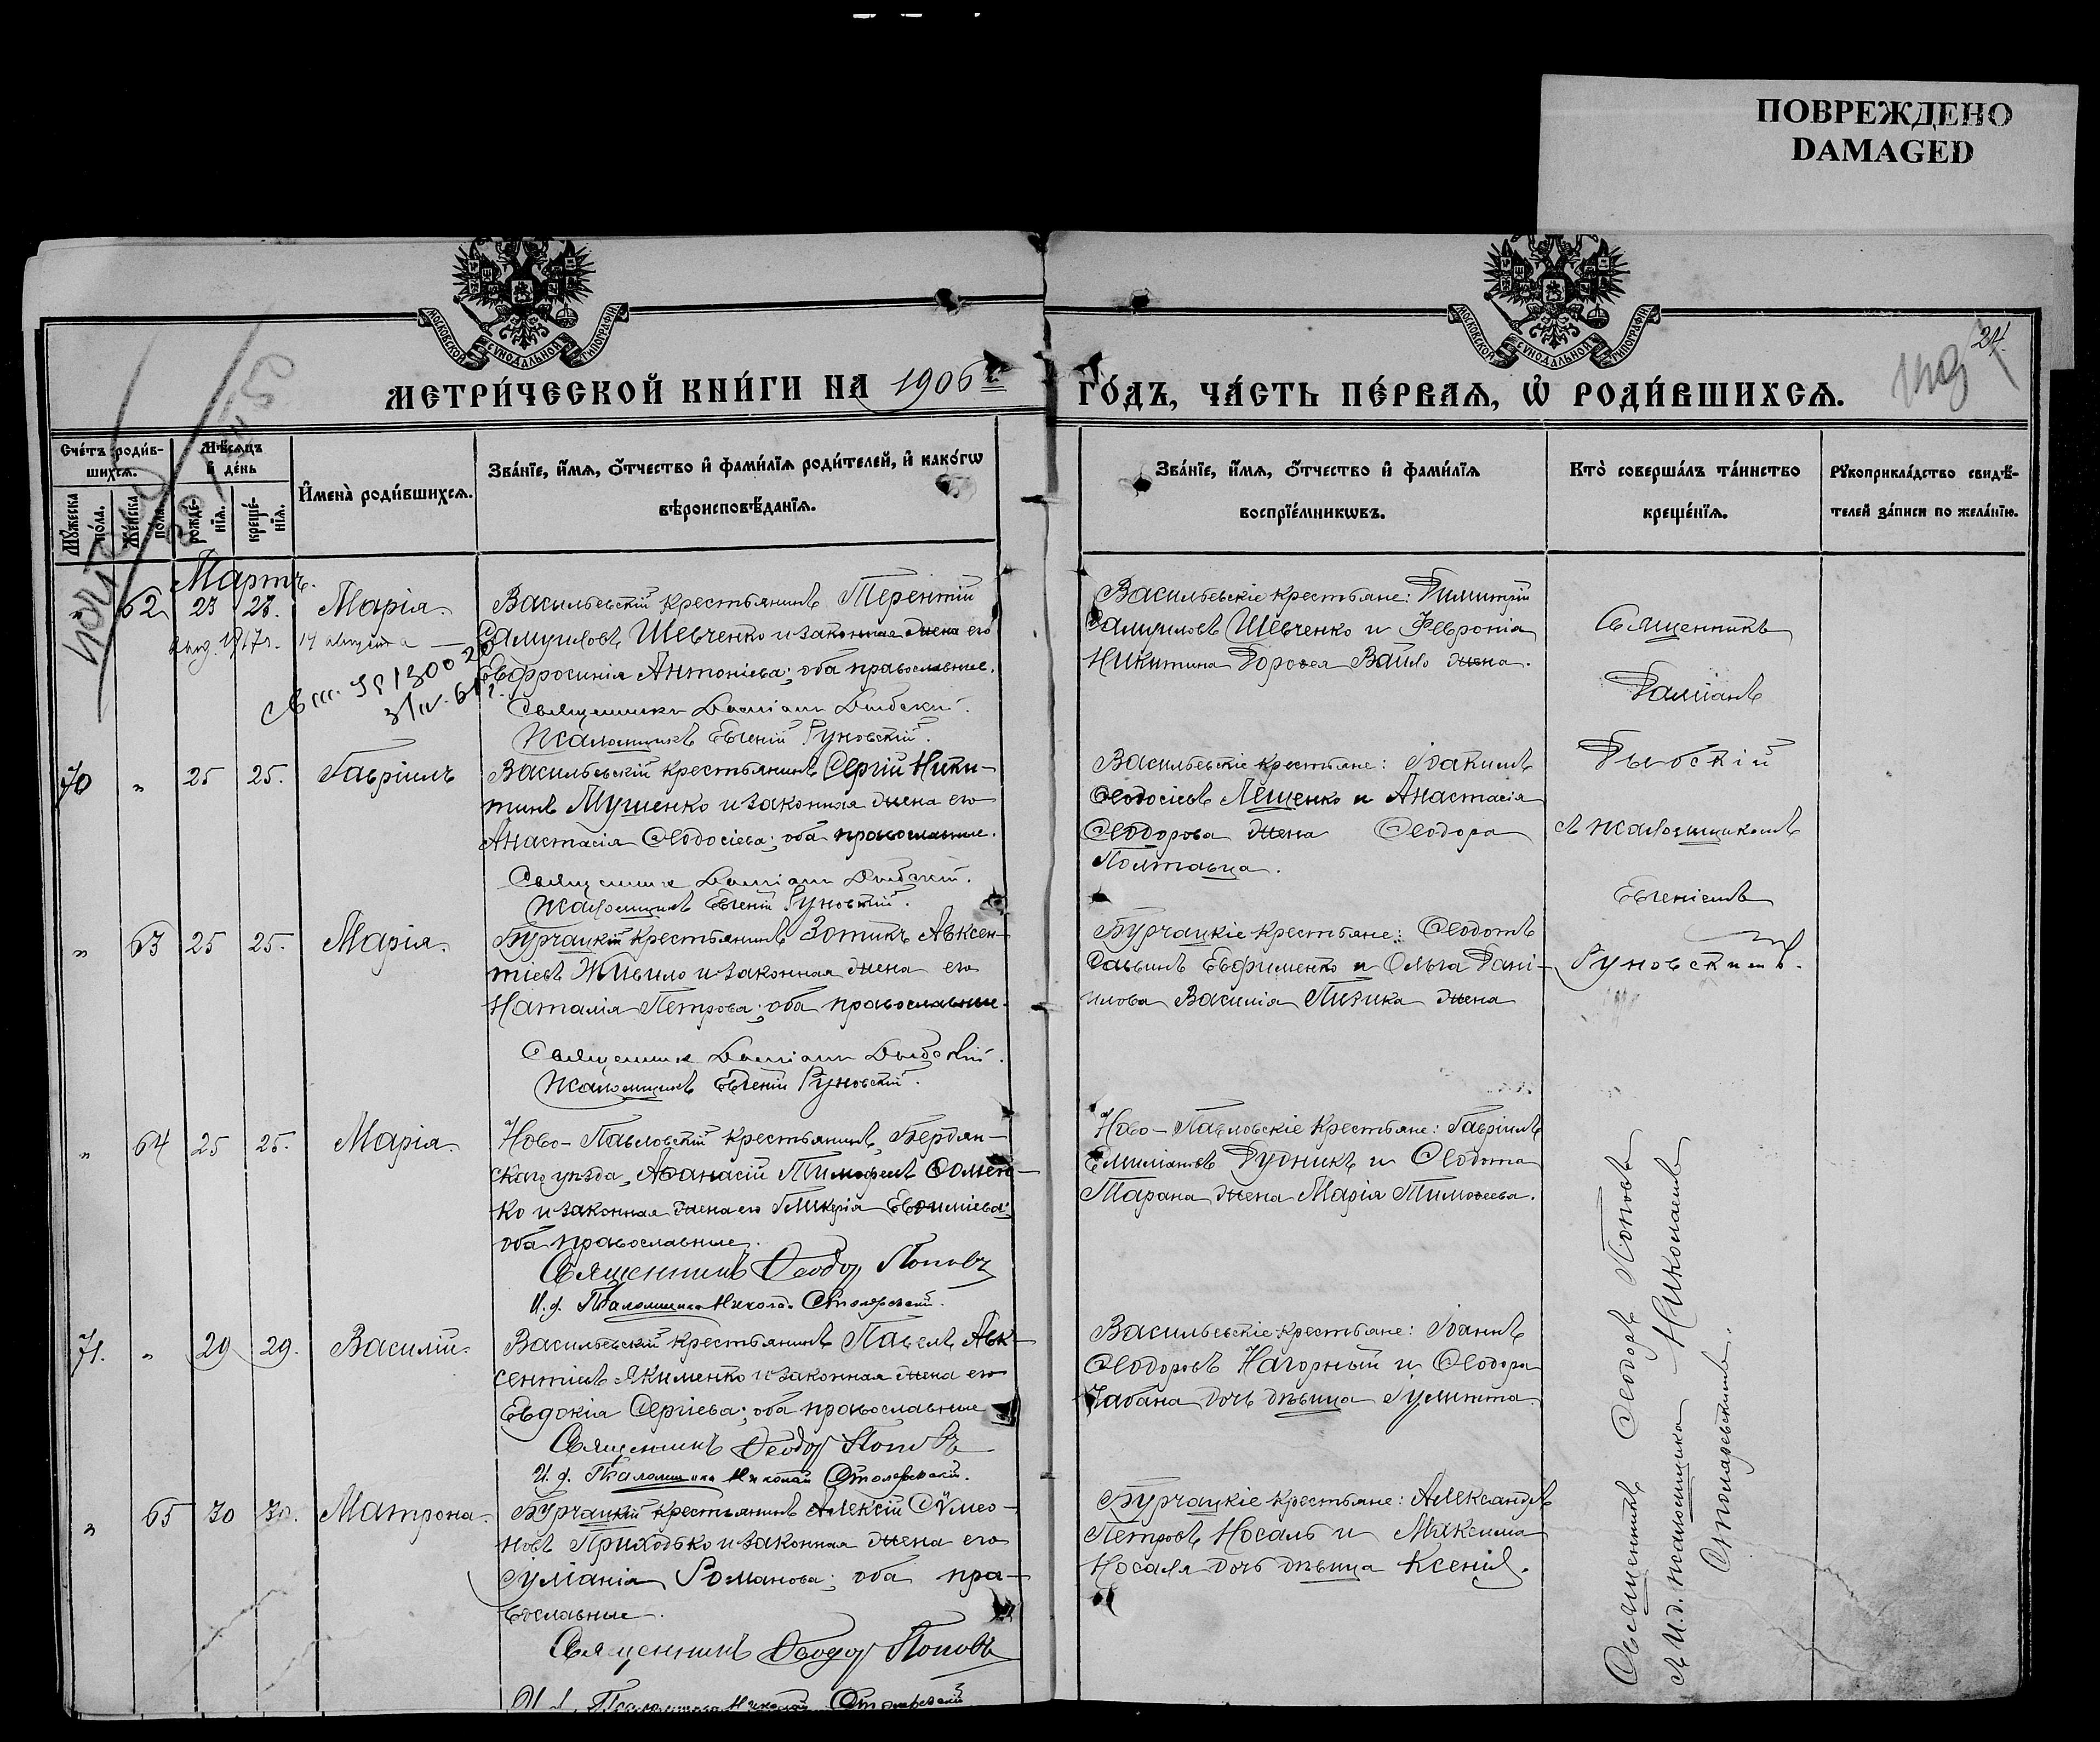 ПОВРЕЖДЕНО
DAMAGED
МОСКОВСКОЙ СѴНОДАЛЬНОЙ ТИПОГРАФІИ
МОСКОВСКОЙ СѴНОДАЛЬНОЙ ТИПОГРАФІИ
24.
МЕТРИ́ЧЕСКОЙ КНИ́ГИ НА 1906 й
ГО́ДЪ, ЧА́СТЬ ПЕ́РВАѦ, Ѽ РОДИ́ВШИХСѦ.
Сче́тъ роди́в-
шихсѧ.
Мѣ́сѧцъ
и҆ де́нь
Мꙋ́жеска по́ла.
Же́нска по́ла.
рожде́-
нїѧ.
креще́-
нїѧ.
И҆мена̀ роди́вшихсѧ.
Зва́нїе, и҆́мѧ, ѻ҆́тчество и҆ фами́лїѧ роди́телей, и҆ како́гѡ
вѣроисповѣ́данїѧ.
Зва́нїе, и҆́мѧ, ѻ҆́тчество и҆ фами́лїѧ
воспрїе́мникѡвъ.
Кто̀ соверша́лъ та́инство
креще́нїѧ.
Рꙋкоприкла́дство свидѣ́-
телей за́писи по жела́нїю.
Мартъ.
" 62 23 23. Марія.
Васильевскій крестьянинъ Терентій
Самуиловъ Шевченко и законная жена его
Евфросинія Антоніева; оба православные.
14 августа
3/IV-61 г.
Священникъ Даміанъ Дыбскій.
Псаломщикъ Евгеній Руновскій.
Васильевскіе крестьяне: Димитрій
Самуиловъ Шевченко и Февронія
Никитина Дорофея Вайло жена.
Священникъ
Даміанъ
Дыбскій
съ псаломщикомъ
Евгеніемъ
Руновскимъ.
70 " 25 25. Гавріилъ
Васильевскій крестьянинъ Сергій Ники-
тинъ Мушенко и законная жена его
Анастасія Ѳеодосіева; оба православные.
Священникъ Даміанъ Дыбскій.
Псаломщикъ Евгеній Руновскій.
Васильевскіе крестьяне: Іоакимъ
Ѳеодосіевъ Лещенко и Анастасія
Ѳеодорова жена Ѳеодора
Полтавца.
" 63 25 25. Марія.
Бурчацкій крестьянинъ Зотикъ Авксен-
тіевъ Живило и законная жена его
Наталія Петрова; оба православные.
Священникъ Даміанъ Дыбскій.
Псаломщикъ Евгеній Руновскій.
Бурчацкіе крестьяне: Ѳеодотъ
Саввинъ Евфименко и Ольга Дані-
илова Василія Пизика жена
" 64 25 25. Марія.
Ново-Павловскій крестьянинъ, Бердян-
скаго уѣзда, Аѳанасій Тимоѳеевъ Ѳомен-
ко и законная жена его Гликерія Евѳиміева;
оба православные.
Священникъ Ѳеодоръ Поповъ
И. д. Псаломщика Николай Столяревскій.
Ново-Павловскіе крестьяне: Гавріилъ
Емиліановъ Дудникъ и Ѳеодота
Тарана жена Марія Тимоѳеева.
71. " 29 29. Василій.
Васильевскій крестьянинъ Павелъ Авк-
сентіевъ Якименко и законная жена его
Евдокія Сергіева; оба православные
Священникъ Ѳеодоръ Поповъ
И. д. Псаломщика Николай Столяревскій.
Васильевскіе крестьяне: Іоаннъ
Ѳеодоровъ Нагорный и Ѳеодора
Чабана дочь дѣвица Іулитта.
" 65 30 30. Матрона.
Бурчацкій крестьянинъ Алексій Сѵмео-
новъ Приходько и законная жена его
Іуліанія Романова; оба пра-
вославные.
Священникъ Ѳеодоръ Поповъ
И. д. Псаломщика Николай Столяревскій
Бурчацкіе крестьяне: Александръ
Петровъ Носаль и Максима
Носаля дочь дѣвица Ксенія.
Священникъ Ѳеодоръ Поповъ
съ И. д. псаломщика Николаемъ
Столяревскимъ.